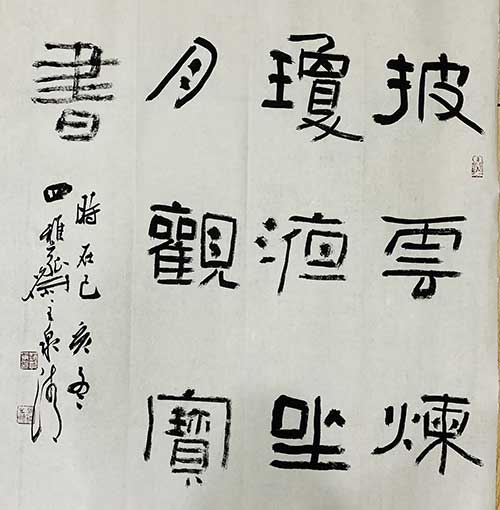 披雲煉
瓊液坐
月觀寶
書
時在己亥冬
四
主泉